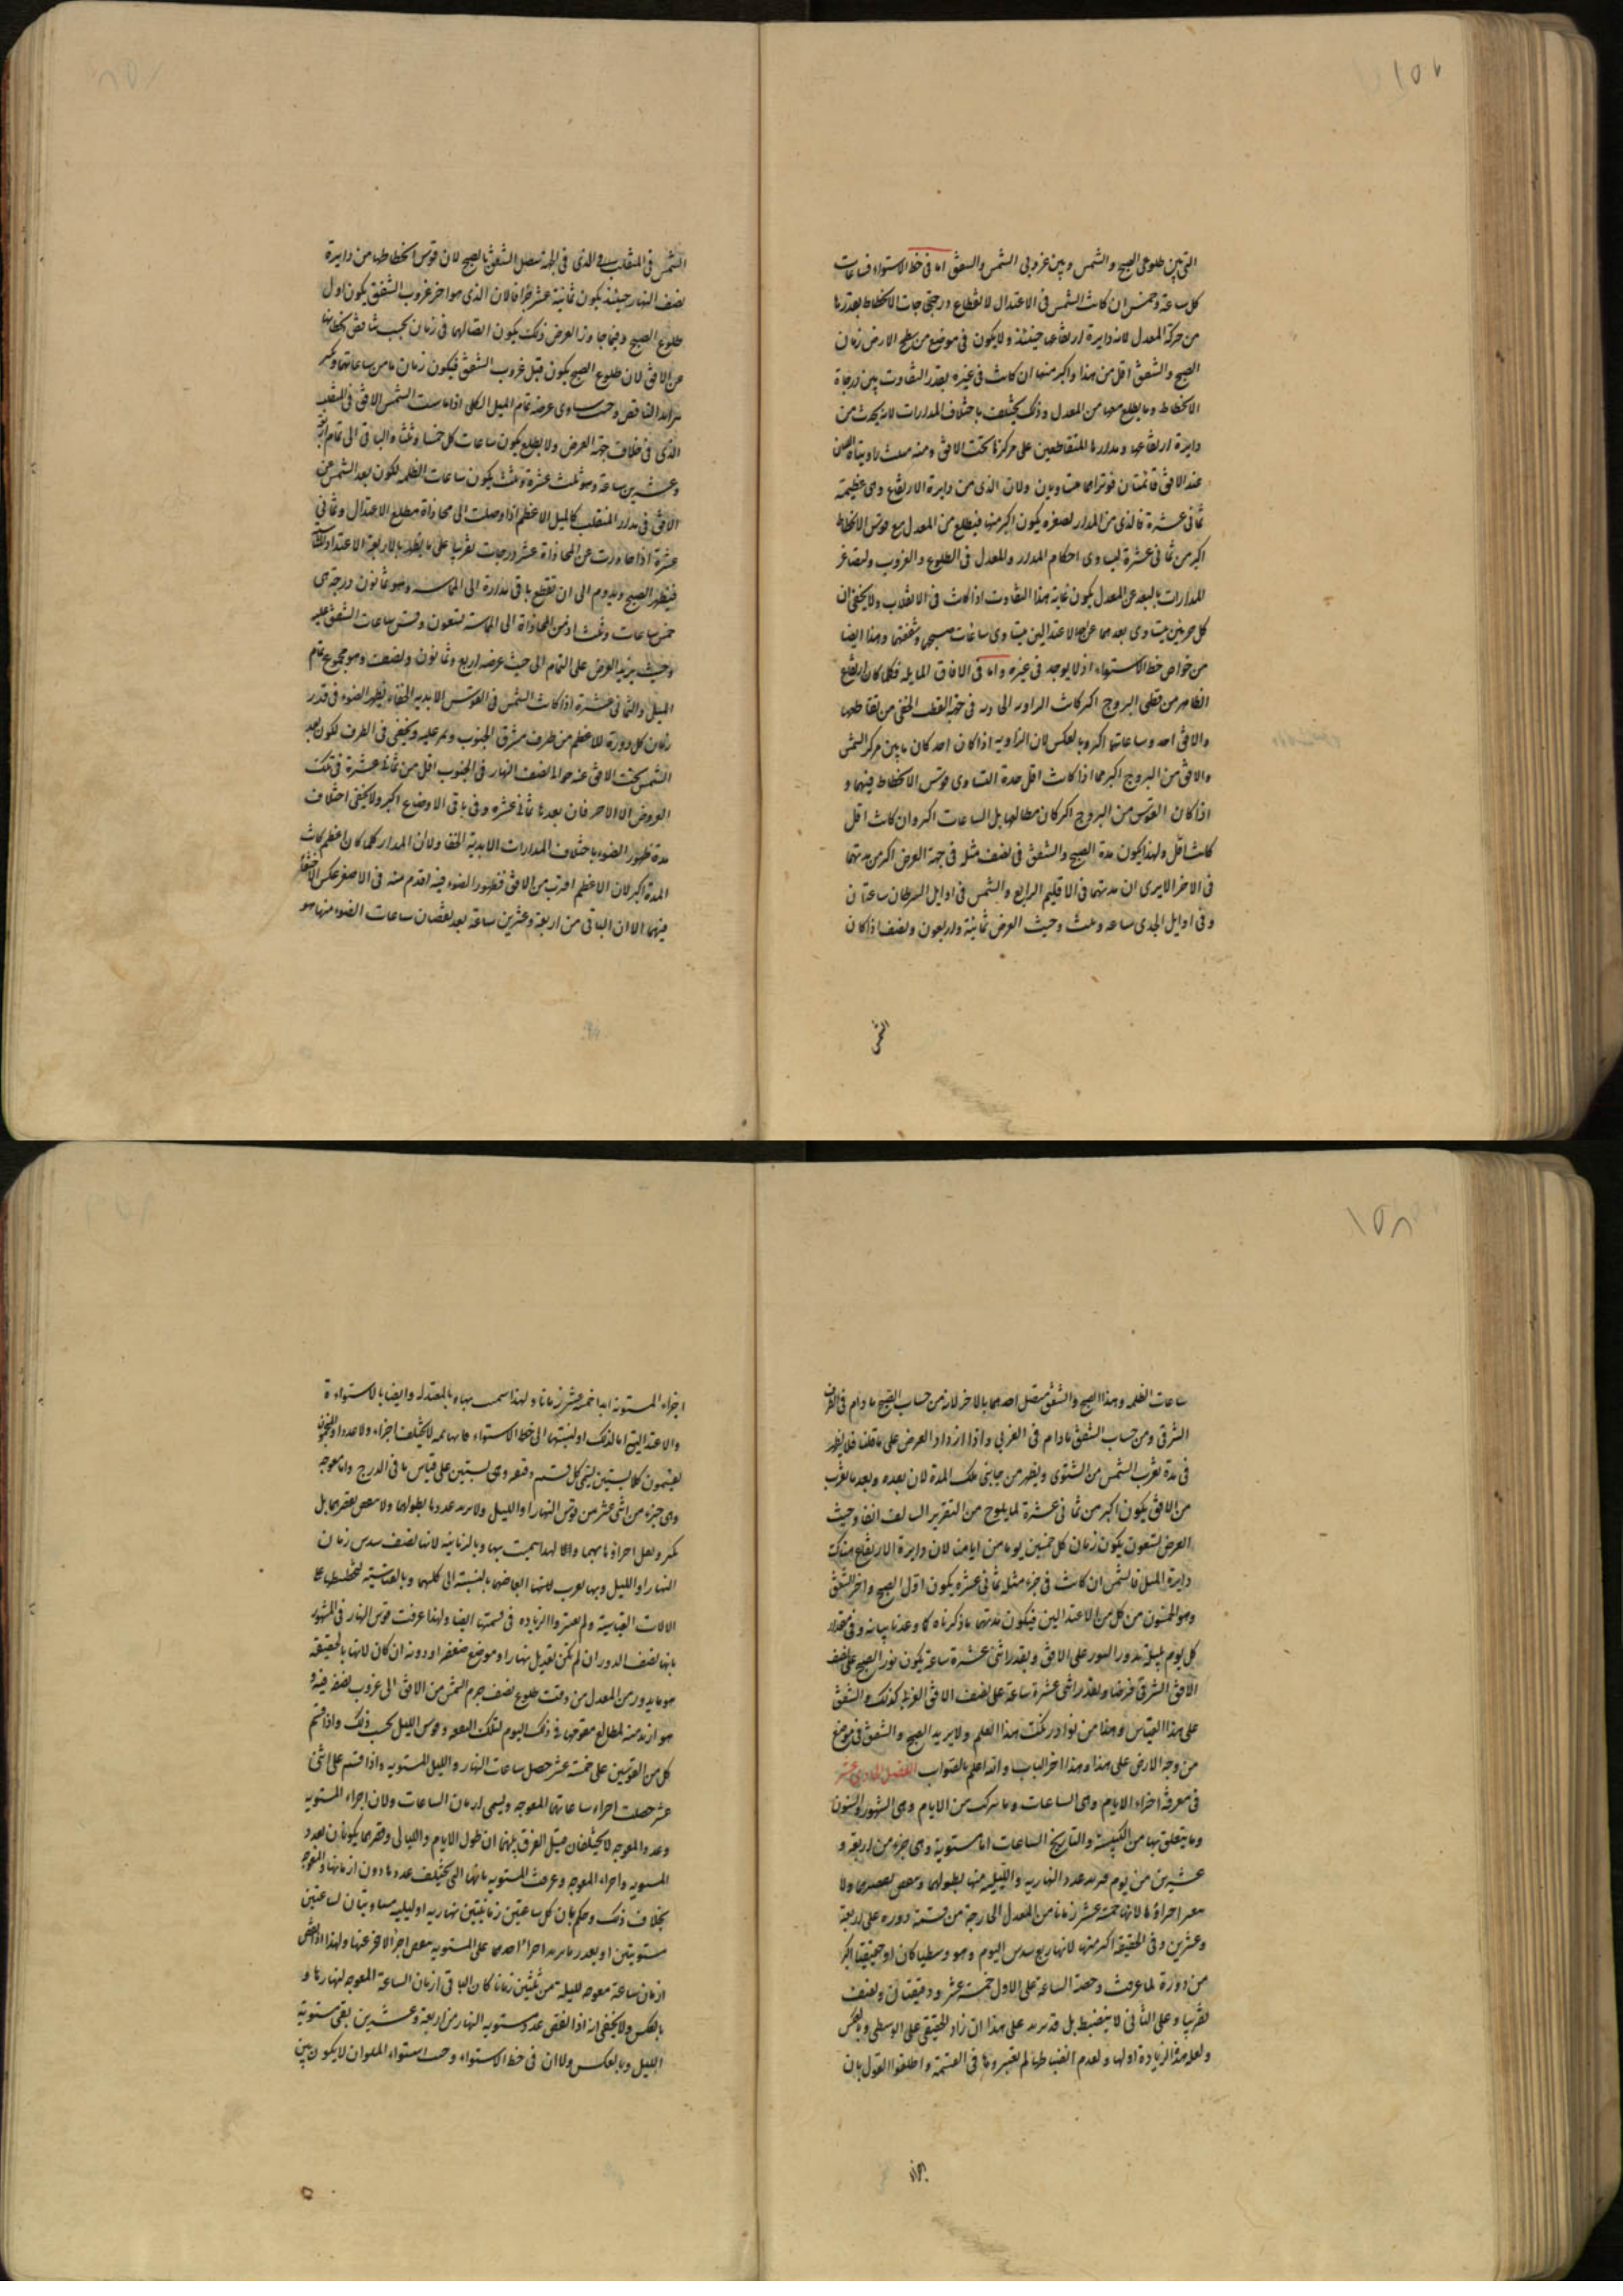 ١٥٧
التي بين طلوعي الصبح والشمس وبين غروبي الشمس والشفق اما في خط الاستواء فساعات
كل ساعة وخمس ان كانت الشمس في الاعتدال لانقطاع درجات الانحطاط بقدرها
من حركة المعدل لانه دايرة ارتفاعها حينئذ ولا يكون في موضع من سطح الارض زمان
الصبح والشفق اقل من هذا واكبر منها ان كانت في غيره بقدر التفاوت بين درجاة
الانحطاط وما يطلع معها من المعدل وذلك يختلف باختلاف المدارات لانه يحدث من
دايرة ارتفاعها ومدارها المتقاطعين على مركزها تحت الافق ومنه مثلث زاويتاه اللتان
عند الافق قائمتان فوتراهما متساويان ولان الذي من دايرة الارتفاع وهي عظيمة
ثماني عشرة فالذي من المدار لصغره يكون اكبر منها فيطلع من المعدل مع قوس الانحطاط
اكبر من ثماني عشرة لتساوي احكام المدار والمعدل في الطلوع والغروب ولتصاغر
المدارات بالبعد عن المعدل يكون غاية هذا التفاوت اذا كانت في الانقلاب ولا يخفى ان
كل جزئين يتساوى بعدهما عن الاعتدالين يتساوى ساعات صبحهما وشفقهما وهذا ايضا
من خواص خط الاستواء اذ لا يوجد في غيره واما في الافاق المايلة فكلما كان ارتفاع
الظاهر من قطبي البروج اكبر كانت الزاوية الحادة في جهة القطب الخفي من تقاطعها
والافق احد وساعاتها اكبر وبالعكس لان الزاوية اذا كان احد كان ما بين مركز الشمس
والافق من البروج اكبر مما اذا كانت اقل حدة لتساوي قوس الانحطاط فيهما و
اذا كان القوس من البروج اكبر كان مطالعها بل الساعات اكبر وان كانت اقل
كانت اقل ولهذا يكون مدة الصبح والشفق في نصف مثلا في جهة العرض اكبر من مدتهما
في الاخر الا يرى ان مدتهما في الاقليم الرابع والشمس في اوايل السرطان ساعتان
وفي اوايل الجدي ساعة وثلث وحيث العرض ثمانية واربعون ونصف اذا كان
الشمس
الشمس في المنقلب الذي في الجهة يتصل الشفق بالصبح لان قوس انحطاطها من دايرة
نصف النهار حينئذ يكون ثمانية عشر جزءا فالان الذي هو اخر غروب الشفق يكون اول
طلوع الصبح وفيما جاوز العرض ذلك يكون اتصالهما في زمان بحسب تناقص انحطاطها
عن الافق لان طلوع الصبح يكون قبل غروب الشفق فيكون زمان ما من ساعاتهما
بتزايد التناقص وحيث يساوي عرضه تمام الميل الكلي اذا ماست الشمس الافق في المنقلب
الذي في خلاف جهة العرض ولا يطلع يكون ساعات كل خمسا وثلثا والباقي الى تمام اربعة
وعشرين ساعة وهو ثلث عشرة وثلث يكون ساعات الظلمة لكون بعد الشمس عن
الافق في مدار المنقلب كالميل الاعظم اذا وصلت الى محاذاة مطلع الاعتدال وثماني
عشرة اذا جاوزت عن المحاذاة عشر درجات تقريبا على ما يظهر بالاربعة الاعتدادية
فيظهر الصبح ويدوم الى ان تقطع باقي مدارة الى المماسة وهو ثمانون درجة هي
خمس ساعات وثلث اذ من المحاذاة الى المماسة تسعون وقس ساعات الشفق عليه
وحيث يزيد العرض على التمام الى حيث عرضه اربع وثمانون ونصف وهو مجموع تمام
الميل والثماني عشرة اذا كانت الشمس في القوس الابدية الخفاء يظهر الضوء في قدر
زمان كل دورة للاعظم من طرف مشرق الجنوب ويمر عليه ويختفي في الطرف لكون بعد
الشمس تحت الافق عند موافاة نصف النهار في الجنوب اقل من ثماني عشرة في تلك
العروض الا الاخر فان بعدها ثماني عشرة وفي باقي الاوضاع اكبر ولا يخفى اختلاف
مدة ظهور الضوء باختلاف المدارات الابدية الخفا ولان المدار كلما كان اعظم كانت
المدة اكبر لان الاعظم اقرب من الافق فظهور الضوء فيه اقدم منه في الاصغر عكس
فيهما الا ان الباقي من اربعة وعشرين ساعة بعد نقصان ساعات الضوء منها هو
١٥٨
ساعات الظلمة وهذا الصبح والشفق متصل احدهما بالاخر لانه من حساب الصبح ما دام في الطرف
الشرقي ومن حساب الشفق ما دام في الغربي واذا ازداد العرض على ما قلنا فلا يظهر
في مدة بقرب الشمس من الشتوي ويظهر من جانبي تلك المدة لان بعده وبعد ما يقرب
من الافق يكون اكبر من ثماني عشرة لما يلوح من التقرير السالف انفا وحيث
العرض تسعون يكون زمان كل خمسين يوما من ايامنا لان دايرة الارتفاع هناك
دايرة الميل فالشمس ان كانت في جزء مثله ثماني عشرة يكون اول الصبح واخر الشفق
وهو الخمسون من كل من الاعتدالين فيكون مدتهما ما ذكرناه كما وعدنا بيانه وفي مقدار
كل يوم بليلة يدور النور على الافق وبقدر اثني عشرة ساعة يكون نور الصبح على نصف
الافق الشرقي فرضا وبقدر اثني عشرة ساعة على نصف الافق الغربي كذلك والشفق
على هذا القياس وهذا من نوادر نكت هذا العلم ولا يزيد الصبح والشفق في موضع
من وجه الارض على هذا وهذا اخر الباب والله اعلم بالصواب الفصل الحادي عشر
في معرفة اجزاء الايام وهي الساعات وما يتركب من الايام وهي الشهور والسنون
وما يتعلق بها من الكبيسة والتاريخ الساعات اما مستوية وهي جزء من اربعة و
عشرين من يوم فيزيد عدد النهارية والليلية منها بطولهما وينقص بقصرهما ولا
يتغير اجزاؤها لانها خمسة عشر زمانا من المعدل الخارجة من قسمة دوره على اربعة
وعشرين وفي الحقيقة اكبر منها لانها ربع سدس اليوم وهو وسطيا كان او حقيقيا اكبر
من دورة لما عرفت وحصة الساعة على الاول خمسة عشر ودقيقتان ونصف
تقريبا وعلى الثاني لا ينضبط بل قد يزيد على هذا ان زاد الحقيقي على الوسطي وبالعكس
ولعل هذه الزيادة اولها ولعدم انضباطها لم يعتبروها في القسمة واطلقوا القول بان
اجزاء
اجزاء المستوية ابدا خمسة عشر زمانا ولهذا سميت بها وبالمعتدلة وايضا بالاستواءة
والاعتدالية اما لذلك او لنسبتها الى خط الاستواء فانها ثمه لا يختلف اجزاء ولا عددا والمنجمون
يقسمون كلا بستين يسمى كل قسم دقيقة وهي بستين على قياس ما في الدرج واما معوجة
وهي جزء من اثني عشر من قوس النهار او الليل ولا يزيد عددها بطولهما ولا ينقص بقصرهما بل
يكثر ويقل اجزاؤها بهما ولهذا سميت بها وبالزمانية لانها نصف سدس زمان
النهار او الليل وبها تعرب لانها ابعاضهما بالنسبة الى كليهما وبالقياسية لتخطيطها على
الالات القياسية ولم يعتبروا الزيادة في قسمتها ايضا ولهذا عرفت قوس النهار في المشهور
بانها نصف الدوران لم يكن تعديل نهار او موضع ضعفه او دونه ان كان لانها بالحقيقة
هو ما يدور من المعدل من وقت طلوع نصف جرم الشمس من الافق الى غروب نصفه فيه و
هو ازيد منه لمطالع مقومها في ذلك اليوم لتلك البقعة وقوس الليل بحسب ذلك واذا قسم
كل من القوسين على خمسة عشر حصل ساعات النهار والليل المستوية واذا قسم على اثني
عشر حصلت اجزاء ساعاتها المعوجة ويسمى ازمان الساعات ولان اجزاء المستوية
وعدد المعوجة لا يختلفان قيل الفرق بينهما ان طول الايام والليالي وقصرهما يكونان بعدد
المستوية واجزاء المعوجة وعرفت المستوية بانها التي يختلف عددها دون ازمانها والمعوجة
بخلاف ذلك وحكم بان كل ساعتين زمانيتين نهارية وليلية مساويتان لساعتين
مستويتين او بقدر ما يزيد اجزاء احدهما على المستوية ينقص اجزاء الاخرى عنها ولهذا اذا نقص
ازمان ساعة معوجة لليلة من ثلثين زمانا كان الباقي ازمان الساعة المعوجة لنهارها و
بالعكس ولا يخفى انه اذا نقص عدد مستوية النهار من اربعة وعشرين بقي مستوية
الليل وبالعكس ولا ان في خط الاستواء وحيث استواء الملوان لا يكون بين